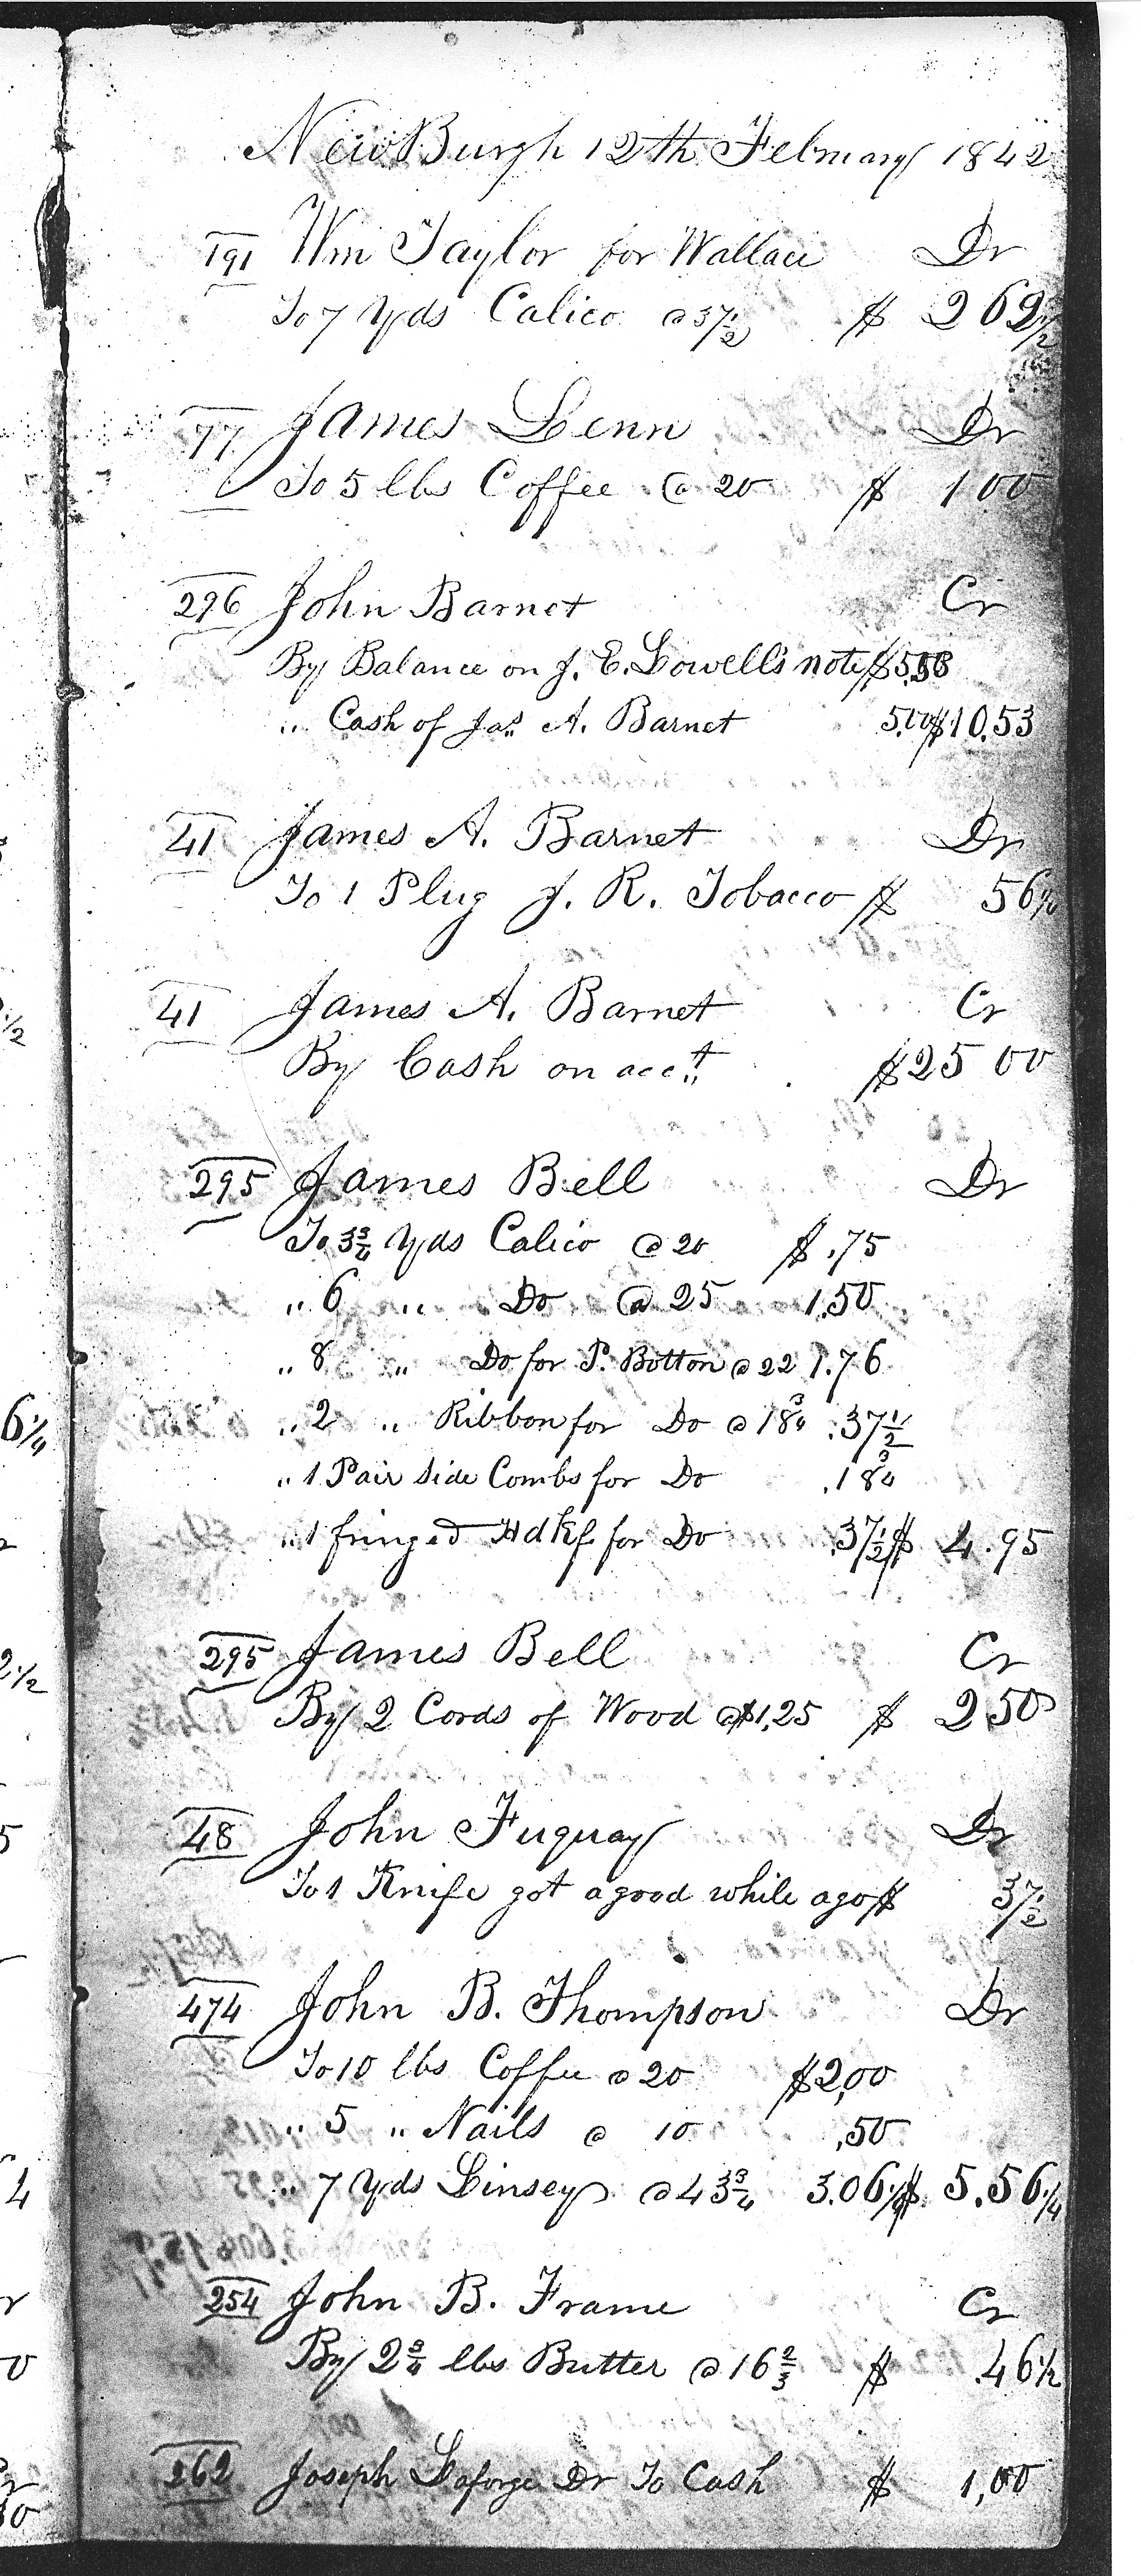 NewBurgh 12th February 1842
191 Wm Taylor for Wallace Dr
To 7 Yds Calico @ 37½ $ 2 62½
77 James Lenn Dr
To 5 lbs Coffee @ 20 $ 1 00
296 John Barnet Cr
By Balance on J. E. Lowells note $5.53
" Cash of Jas. A. Barnet 5.00 $10.53
41 James A. Barnet Dr
To 1 Plug J. R. Tobacco $ 56¼
41 James A. Barnet Cr
By Cash on acct $25 00
295 James Bell Dr
To 3¾ Yds Calico @ 20 $ .75
" 6 " Do @ 25 1.50
" 8 " Do for P. Botton @ 22 1.76
" 2 " Ribbon for Do @ 18¾ .37½
" 1 Pair Side Combs for Do .18¾
" 1 fringed Hdkf for Do .37½ $ 4.95
295 James Bell Cr
By 2 Cords of Wood @ $1,25 $ 2 50
48 John Fuquay Dr
To 1 Knife got a good while ago $ 37½
474 John B. Thompson Dr
To 10 lbs Coffee @ 20 $2,00
" 5 " Nails @ 10 ,50
" 7 Yds Linsey @ 43¾ 3.06¼ $ 5.56¼
254 John B. Frame Cr
By 2¾ lbs Butter @ 16⅔ $ .46½
262 Joseph Laforge Dr To Cash $ 1,00